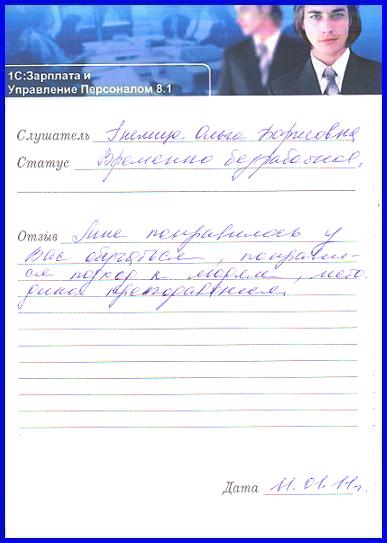 1С:Зарплата и
Управление Персоналом 8.1
Слушатель Ольга Борисовна
Статус Временно безработная,
Отзыв Мне понравилось у
Вас обучаться, понрави-
лся подход к людям, мето-
дика преподавания
Дата 11.01.11г.